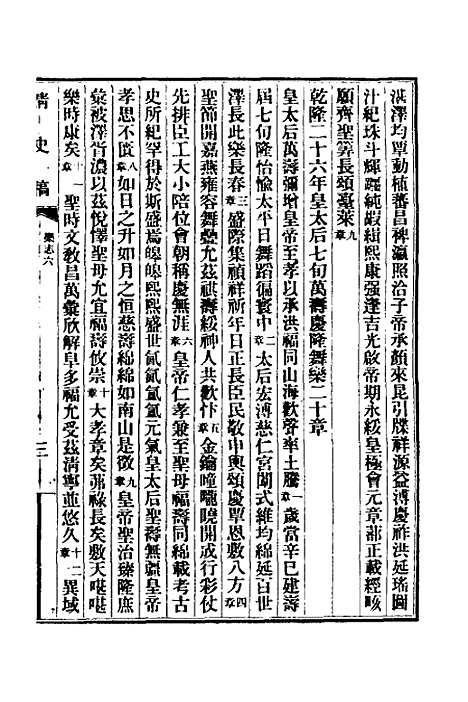 洪澤均單動植蕃昌稗瀛照治子帝承顏來昆引牒祥源益溥慶祚洪延瑤圖
汁紀珠斗輝躔純嘏緝熙康强逢吉光啟帝期永綏皇極會元章蔀正載經畡
願齊聖算長頌臺萊九章
乾隆二十六年皇太后七旬萬壽慶隆舞樂二十章
皇太后萬壽彌增皇帝至孝以承洪福同山海歡聲率土騰一章歲當辛巳建壽
屆七旬隆怡愉太平日舞蹈徧寰中二章太后宏溥慈仁宮闈式維均綿延百世
澤長此樂長春三章盛際集禎祥祈年日正長臣民敬申輿頌慶單恩數八方四章
聖節開嘉燕雍容舞罍尤茲祺壽綏神人共歡忭五章金鑰曈曨曉開戒行彩仗
先排臣工大小陪位會朝稱慶無涯六章皇帝仁孝兼至聖母福壽同綿載考古
史所紀罕得於斯盛焉皥皥熙熙盛世氤氤氳氳元氣皇太后聖壽無疆皇帝
孝思不匱八章如日之升如月之恒慈壽綿綿如南山是徵九章皇帝聖治臻隆庶
彙被澤胥濃以茲悅懌聖母允宜福壽攸崇十章大孝章矣茀祿長矣敷天喏喏
樂時康矣十一章聖時文敎昌萬彙欣解阜多福尤受茲清寧並悠久十二章異域
清史稿
樂志六
三